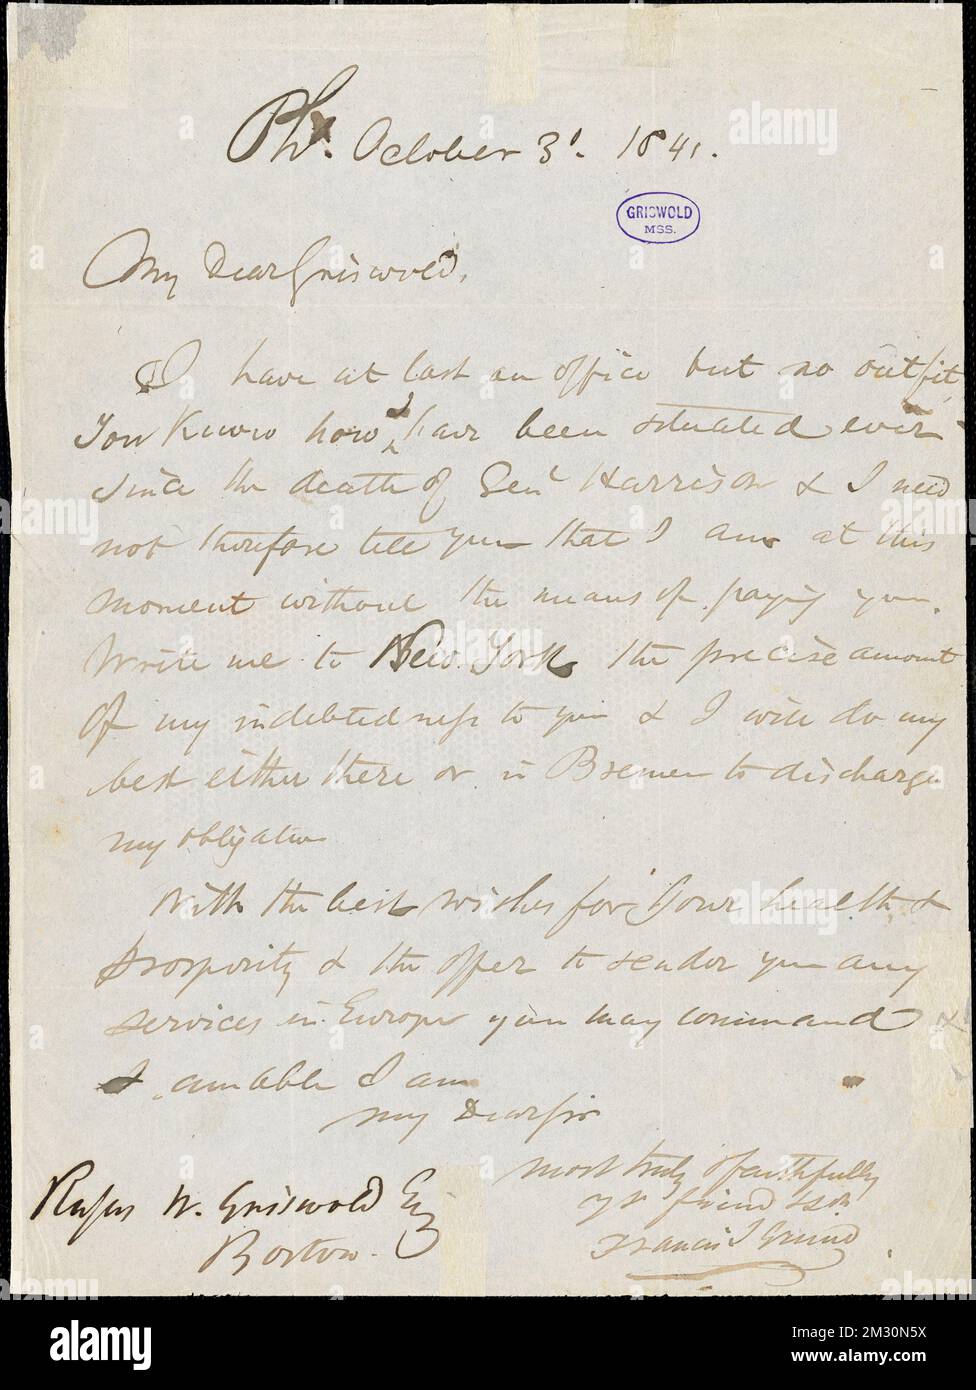 Pha. October 3d. 1841.
GRISWOLD
MSS.
My Dear Griswold,
I have at last an office but no outfit
You Know how I have been situated ever
since the death of Genl Harrison & I need
not therefore tell you that I am at this
moment without the means of paying you.
Write me to New York the precise amount
of my indebtedness to you & I will do my
best either there or in Bremen to discharge
my obligation
With the best wishes for Your health &
prosperity & the offer to render you any
services in Europe you may command &
I am able I am
my Dear Sir
most truly & faithfully
yr friend &
Francis J Grund
Rufus W. Griswold Esq
Boston.
alamy
Image ID: 2M30N5X
www.alamy.com